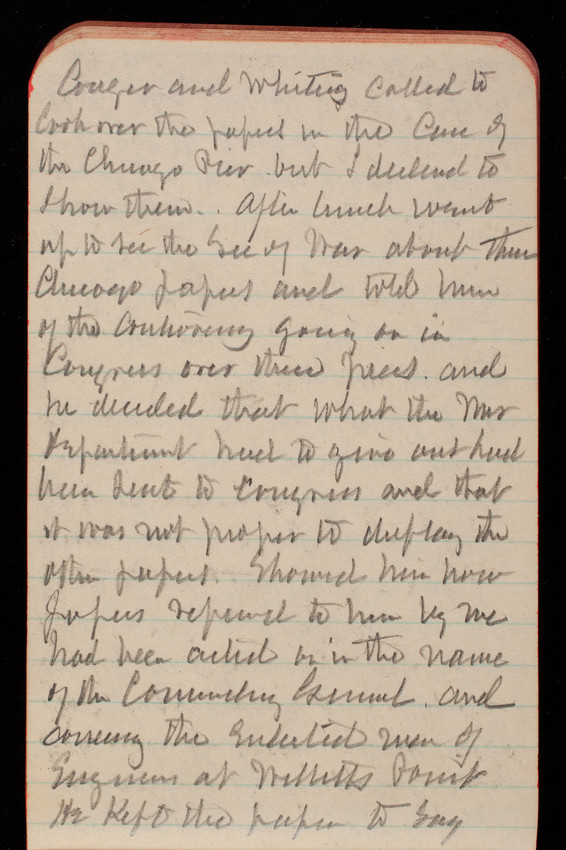 Conger and Whiting called to
look over the papers in the Case of
the Chicago Pier. but I declined to
show them.. After lunch went
up to see the Sec of War about these
Chicago papers and told him
of the controversy going on in
Congress over these piers. and
he decided that what the War
Department had to give out had
been sent to Congress and that
it was not proper to display the
other papers. Showed him how
papers referred to him by me
had been acted on in the name
of the Commanding General. and
the Enlisted men of
Engineers at Willetts Point
He Kept the paper to say